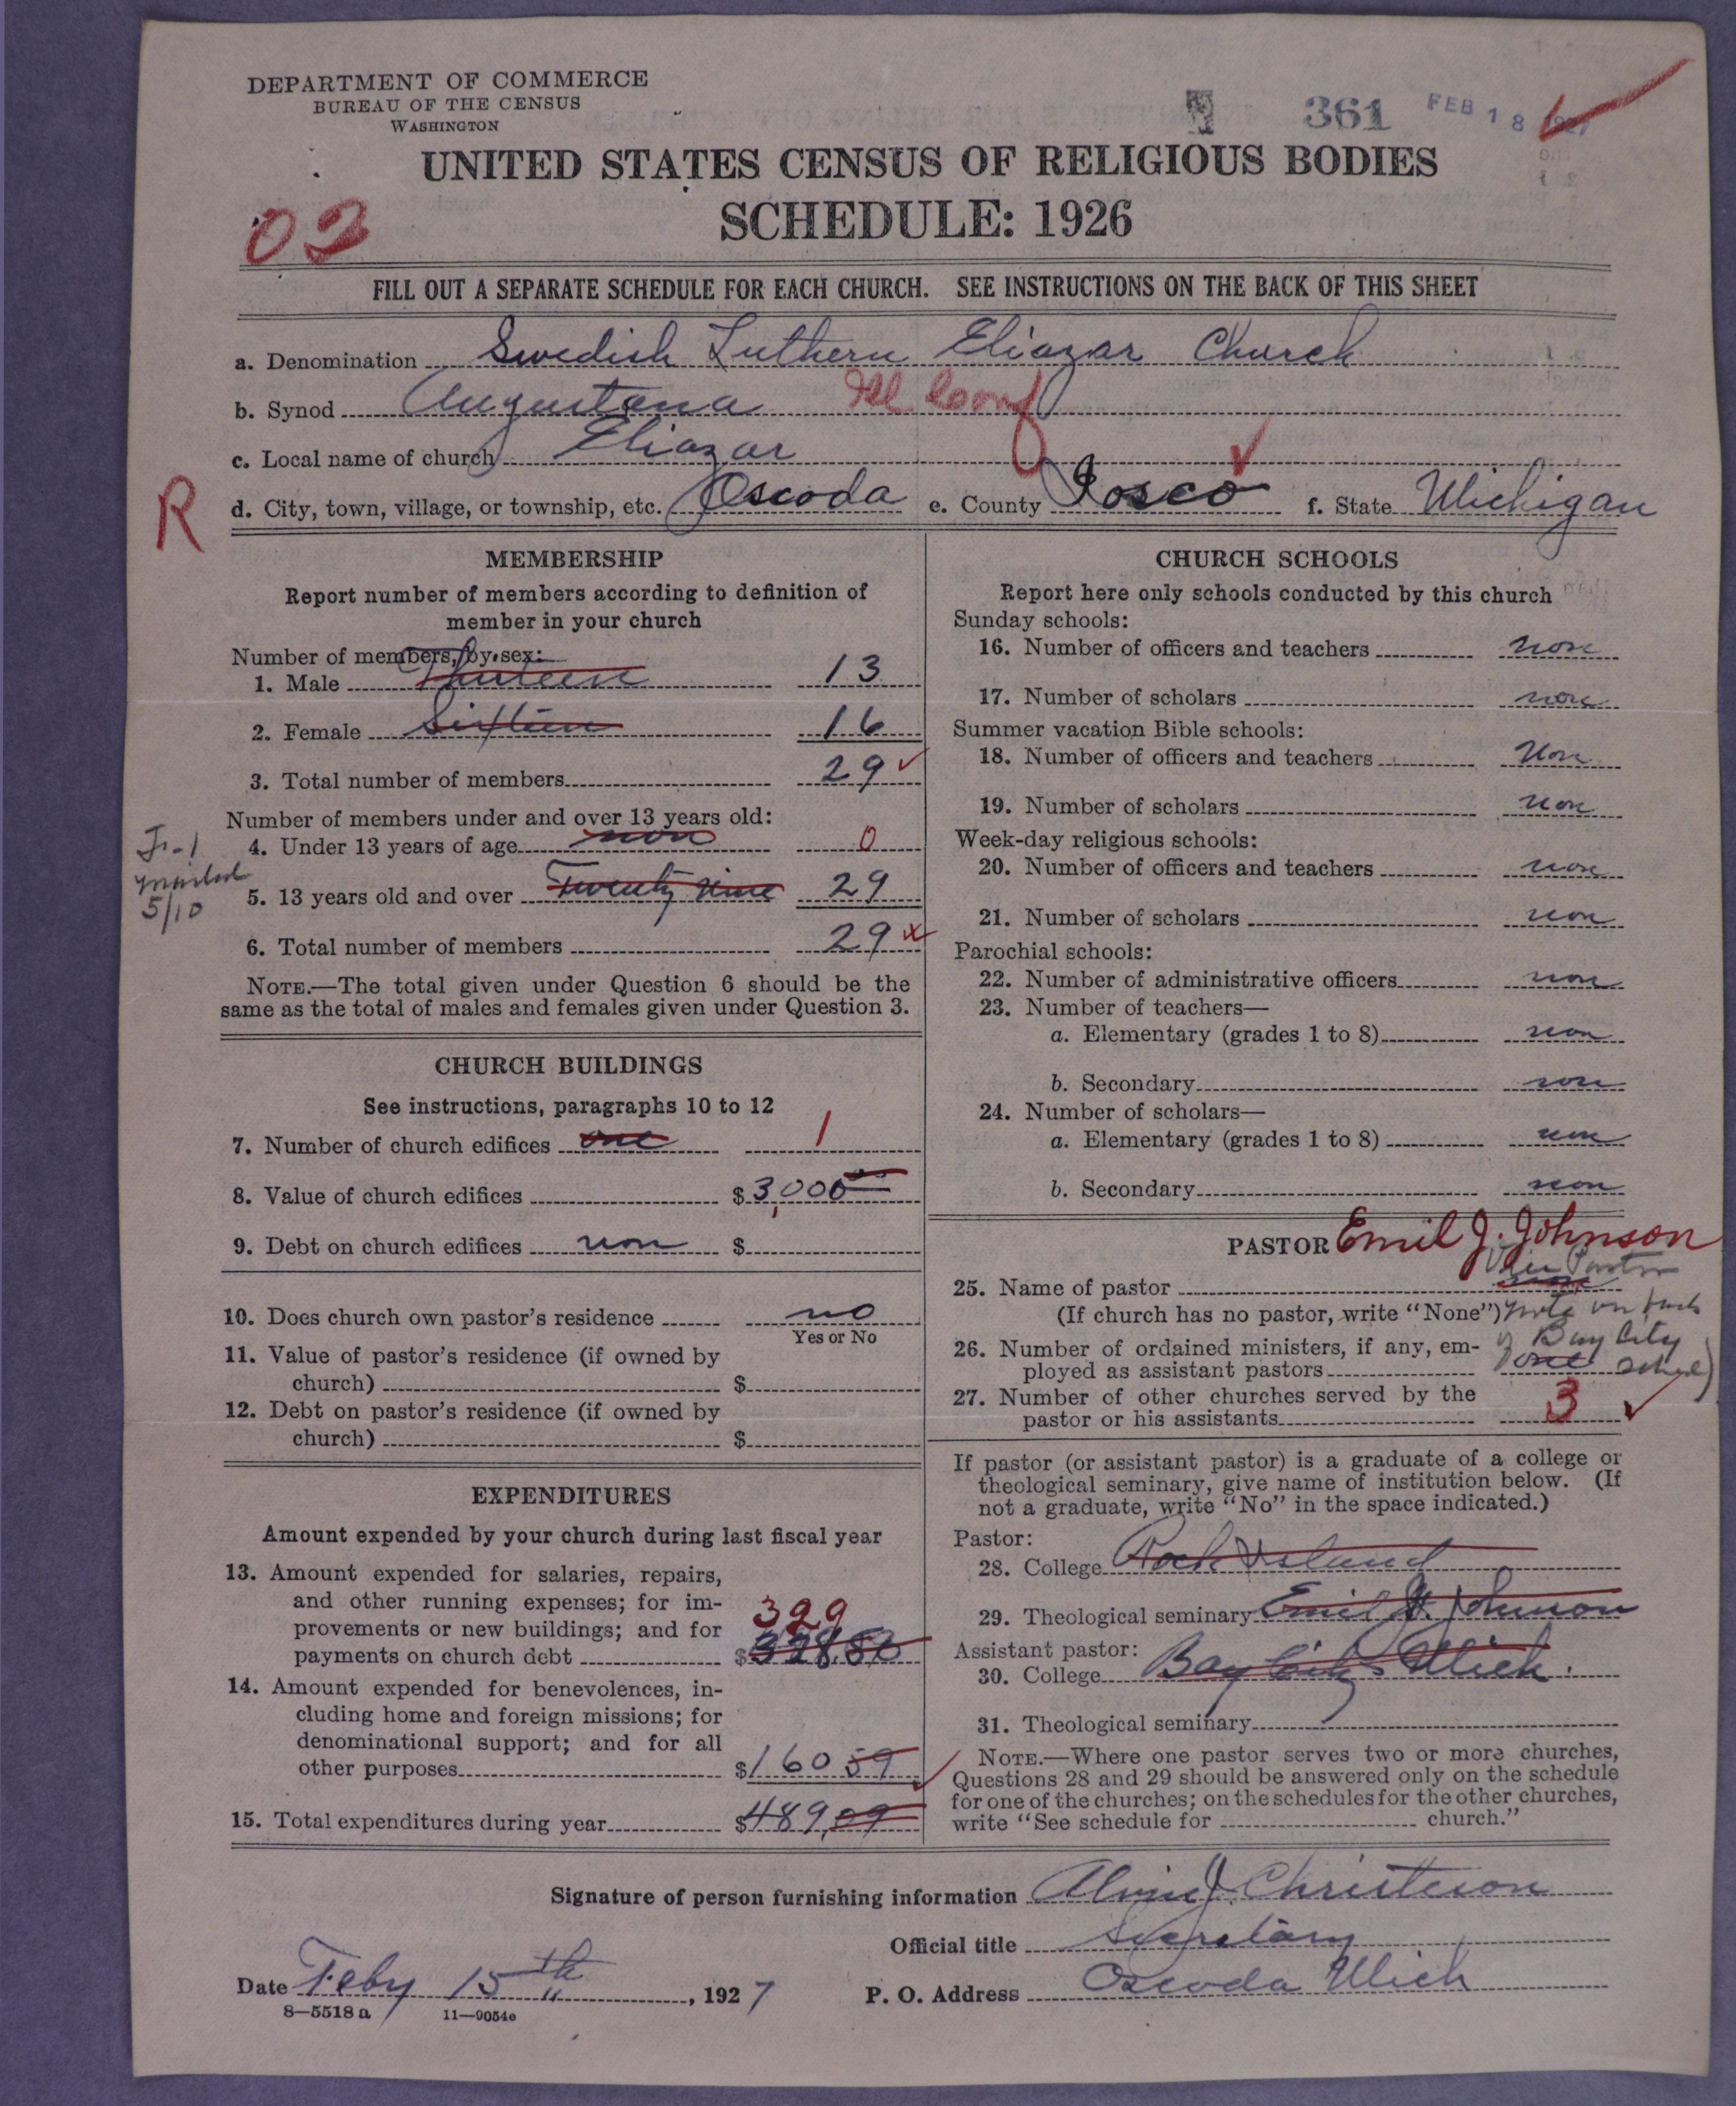 DEPARTMENT OF COMMERCE
BUREAU OF THE CENSUS
WASHINGTON
361 FEB 18 1927
UNITED STATES CENSUS OF RELIGIOUS BODIES
SCHEDULE: 1926
02
FILL OUT A SEPARATE SCHEDULE FOR EACH CHURCH. SEE INSTRUCTIONS ON THE BACK OF THIS SHEET
a. Denomination Swedish Luthern Eliazar Church
b. Synod Augustana Ill. Conf
c. Local name of church Eliazar
R
d. City, town, village, or township, etc. Oscoda e. County Iosco f. State Michigan
MEMBERSHIP
Report number of members according to definition of
member in your church
Number of members, by sex:
1. Male Thirteen 13
2. Female Sixteen 16
3. Total number of members 29
Number of members under and over 13 years old:
4. Under 13 years of age non 0
5. 13 years old and over Twenty nine 29
6. Total number of members 29
5/10
NOTE.—The total given under Question 6 should be the
same as the total of males and females given under Question 3.
CHURCH BUILDINGS
See instructions, paragraphs 10 to 12
7. Number of church edifices one 1
8. Value of church edifices $3,000
9. Debt on church edifices non $
10. Does church own pastor's residence no
Yes or No
11. Value of pastor's residence (if owned by
church) $
12. Debt on pastor's residence (if owned by
church) $
EXPENDITURES
Amount expended by your church during last fiscal year
13. Amount expended for salaries, repairs,
and other running expenses; for im-
provements or new buildings; and for
payments on church debt 329 $328.50
14. Amount expended for benevolences, in-
cluding home and foreign missions; for
denominational support; and for all
other purposes $160 59
15. Total expenditures during year $489,09
CHURCH SCHOOLS
Report here only schools conducted by this church
Sunday schools:
16. Number of officers and teachers non
17. Number of scholars non
Summer vacation Bible schools:
18. Number of officers and teachers Non
19. Number of scholars non
Week-day religious schools:
20. Number of officers and teachers non
21. Number of scholars non
Parochial schools:
22. Number of administrative officers non
23. Number of teachers—
a. Elementary (grades 1 to 8) non
b. Secondary non
24. Number of scholars—
a. Elementary (grades 1 to 8) non
b. Secondary non
PASTOR Emil J. Johnson
25. Name of pastor Pastor
(If church has no pastor, write "None") note on back
26. Number of ordained ministers, if any, em- of Bay City
ployed as assistant pastors one sched)
27. Number of other churches served by the
pastor or his assistants 3
If pastor (or assistant pastor) is a graduate of a college or
theological seminary, give name of institution below. (If
not a graduate, write "No" in the space indicated.)
Pastor:
28. College Rock Island
29. Theological seminary Emil J. Johnson
Assistant pastor:
30. College Bay City Mich.
31. Theological seminary
NOTE.—Where one pastor serves two or more churches,
Questions 28 and 29 should be answered only on the schedule
for one of the churches; on the schedules for the other churches,
write "See schedule for church."
Signature of person furnishing information Alvin J. Christeson
Official title Secretary
Date Feby 15th, 1927 P. O. Address Oscoda Mich
8—5518 a 11—9054c